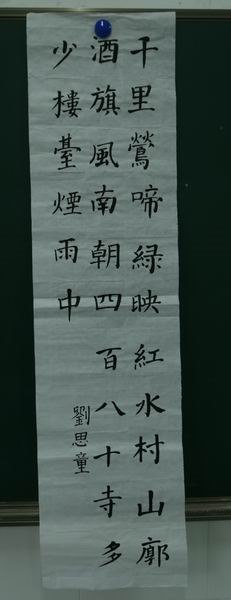 千里鶯啼綠映紅水村山廓
酒旗風南朝四百八十寺多
少樓臺煙雨中
劉思童